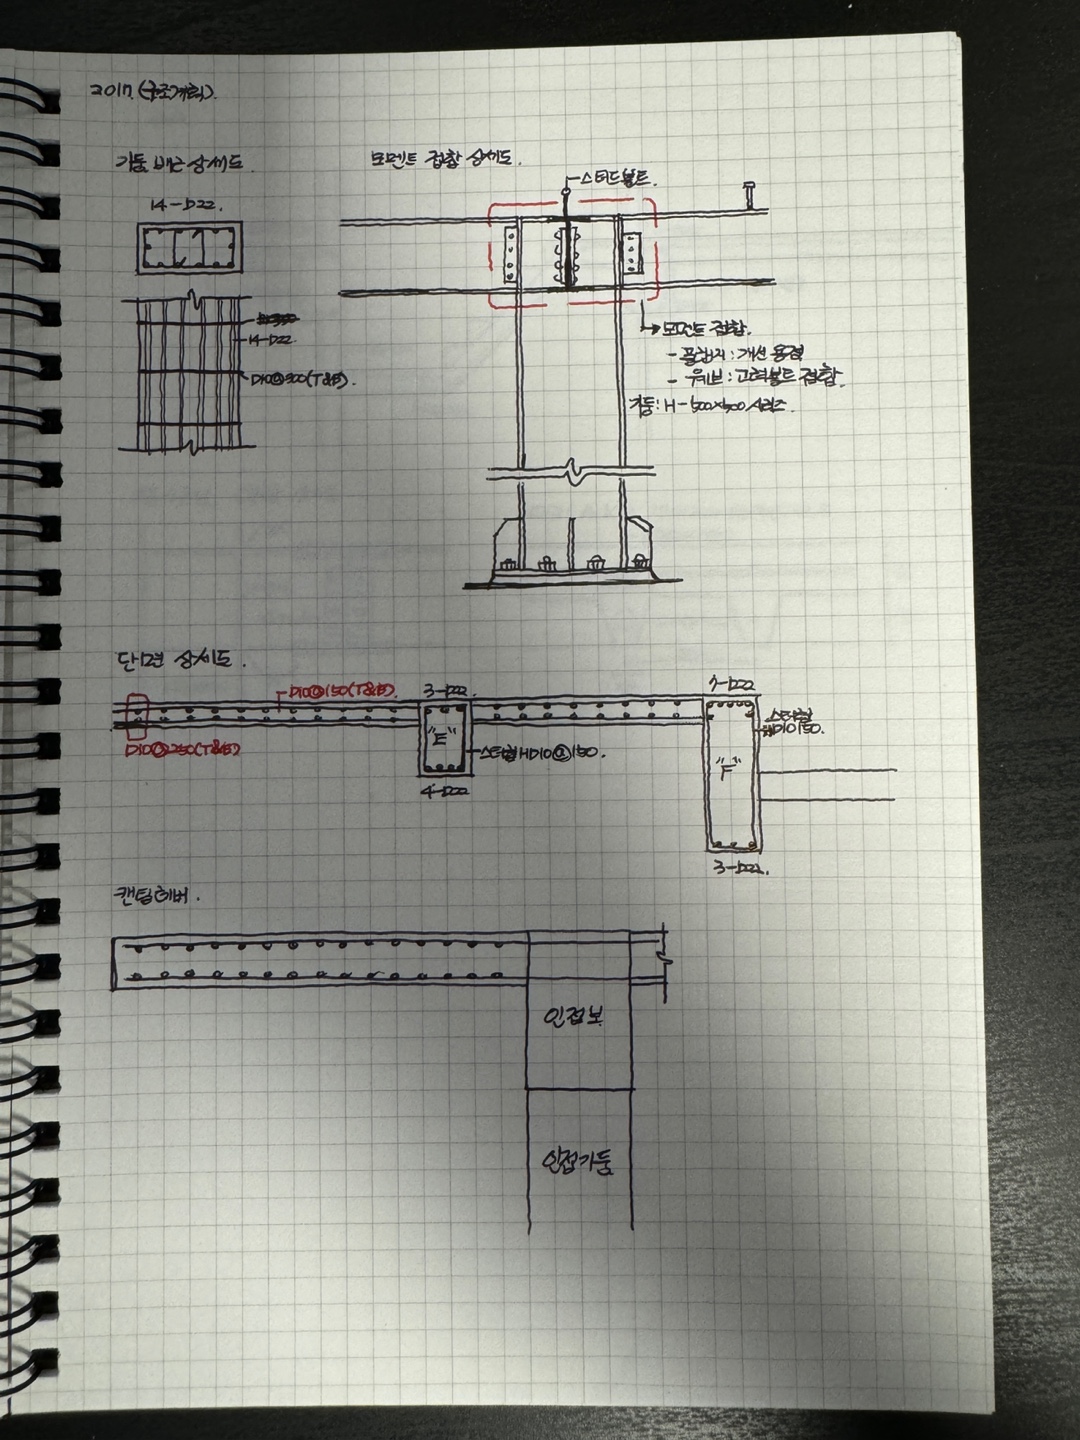 2017. (구조계획).
기둥 배근 상세도.
14-D22.
14-D22
D10@300(T&B).
모멘트 접합 상세도.
스터드볼트.
모멘트 접합.
- 플랜지 : 개선 용접
- 우웨브 : 고력볼트 접합.
기둥: H-500x500 시리즈.
단면 상세도.
D10@150(T&B).
D10@250(T&B)
3-D22.
"E"
스터럽 HD10@150.
4-D22
7-D22
스터럽
D10 150.
"F"
3-D22.
캔틸레버.
인접보
인접기둥